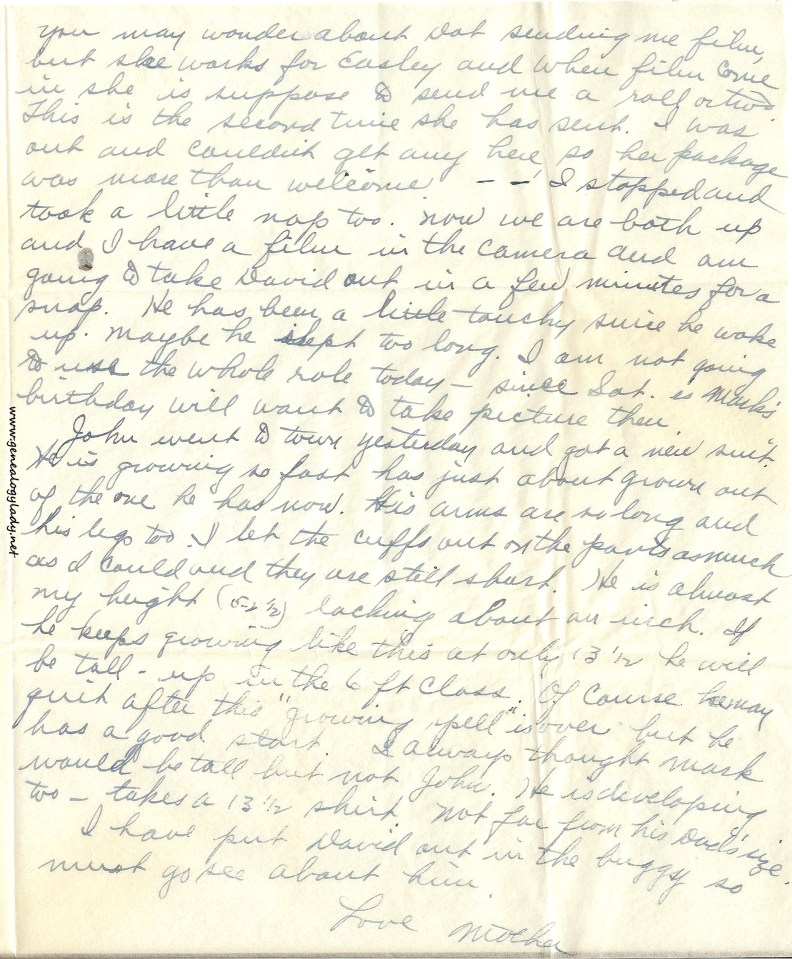 you may wonder about Dot sending me film,
but she works for Easley and when film come
in she is suppose to send me a roll or two
This is the second time she has sent. I was
out and couldn't get any here so her package
was more than welcome — — I stopped and
took a little nap too. Now we are both up
and I have a film in the camera and am
going to take David out in a few minutes for a
snap. He has been a little touchy since he woke
up. Maybe he slept too long. I am not going
to use the whole role today — since Sat. is Mark's
birthday will want to take picture then.
John went to town yesterday and got a new suit.
He is growing so fast has just about grown out
of the one he has now. His arms are so long and
his legs too. I let the cuffs out on the pants as much
as I could and they are still short. He is almost
my height (5-2 1/2) lacking about an inch. If
he keeps growing like this at only 13 1/2 he will
be tall - up in the 6 ft class. Of course he may
quit after this "growing spell" is over but he
has a good start. I always thought Mark
would be tall but not John. He is developing
too — takes a 13 1/2 shirt not far from his Dad's size.
I have put David out in the buggy so
must go see about him.
Love Mother
www.genealogylady.net